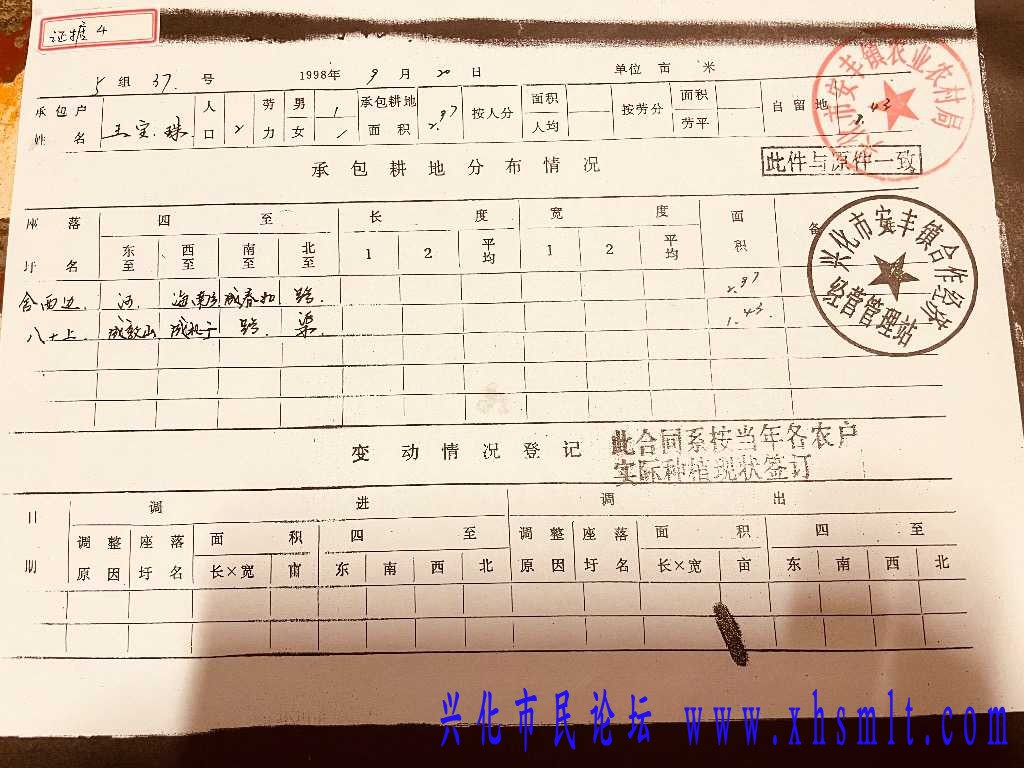 证据4
5组 37.号 1998年 9月 20日 单位 亩 米
承包户姓名 王宝珠 人口 2 劳力 男 1 女 1 承包耕地面积 2.97 按人分 面积 人均 按劳分 面积 劳平 自留地 1.43
兴化市安丰镇农业农村局
承包耕地分布情况
此件与原件一致
座落 四至 长度 宽度 面积 备
圩名 东至 西至 南至 北至 1 2 平均 1 2 平均
舍西边 河 海南 成春扣 路 2.97
八十上 成敦山 成扎子 路 渠 1.43
兴化市安丰镇合作经济
经营管理站
变动情况登记
此合同系按当年各农户
实际种植现状签订
日期 调进 调出
调整原因 座落圩名 面积 四至 调整原因 座落圩名 面积 四至
长×宽 亩 东 南 西 北 长×宽 亩 东 南 西 北
兴化市民论坛 www.xhsmlt.com